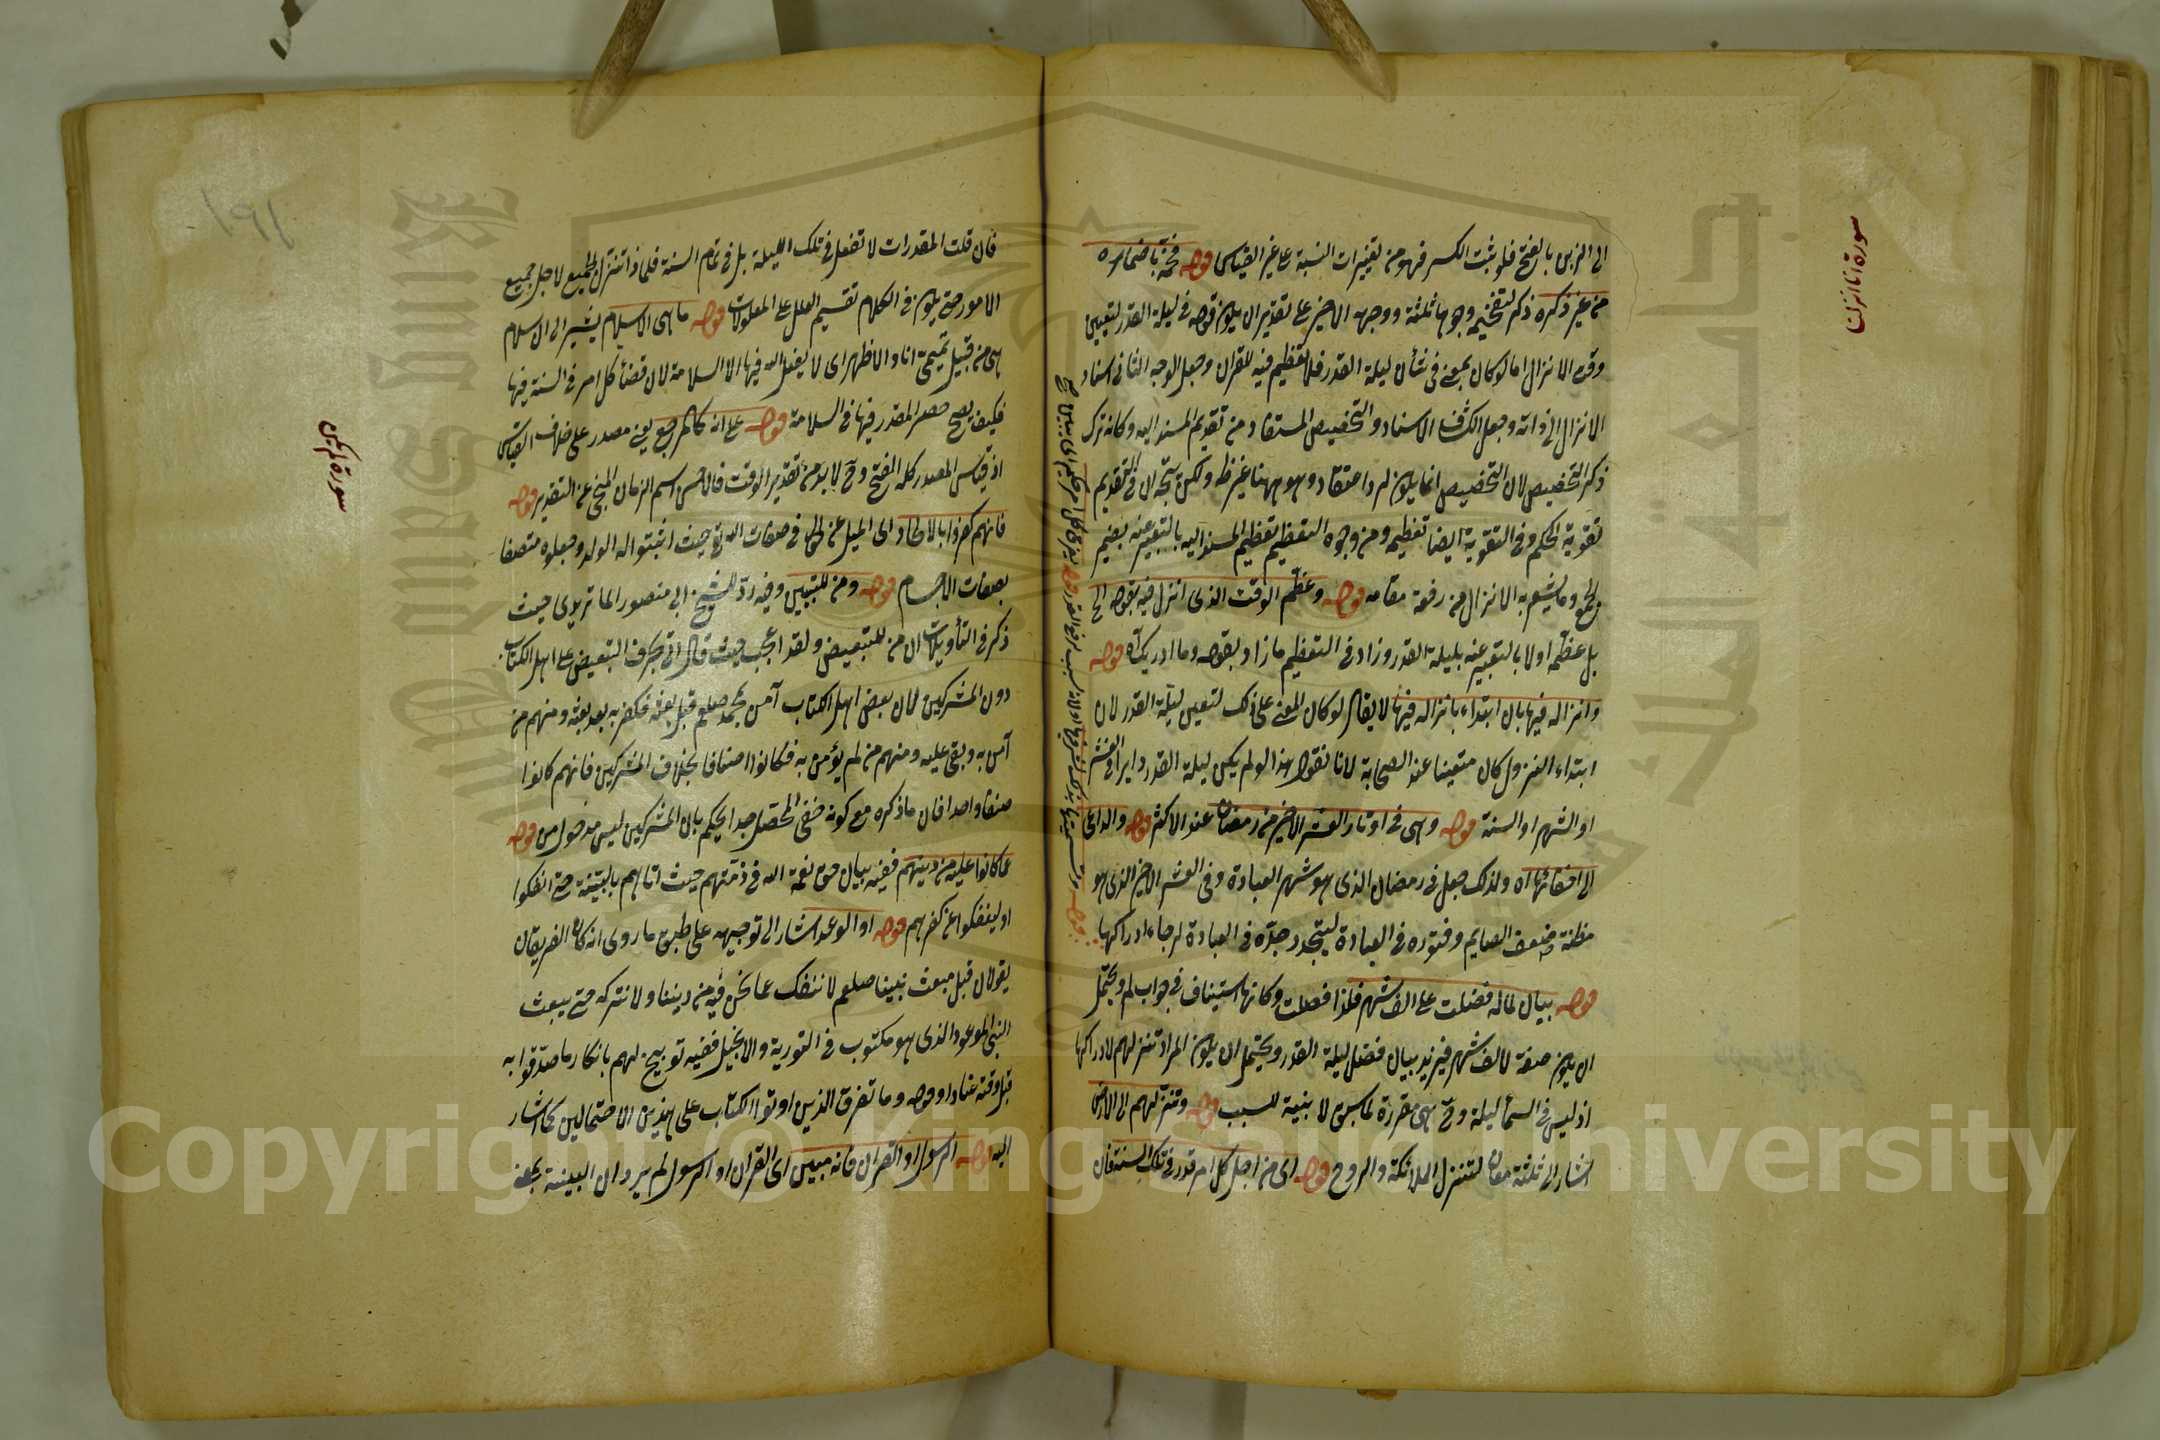 سورة انا انزلنا
الى الزبن بالفتح فلو ثبت الكسر فهو من تغييرات النسبة على غير القياس قوله فخمه باضماره
من غير ذكره ذكر لتفخيمه وجوها ثلثة ووجهه الاخير على تقدير ان يكون قوله فى ليلة القدر لتعيين
وقت الانزال اما لو كان بمعنى فى شأن ليلة القدر فلا تعظيم فيه للقران وجعل الوجه الثانى اسناد
الانزال الى ذاته وجعل الكشف الاسناد والتخصيص المستفاد من تقديم المسند اليه وكانه ترك
ذكر التخصيص لان التخصيص انما يكون لرد اعتقاد وهو ههنا غير ظ ولكن يتجه ان فى التقديم
تقوية الحكم وفى التقوية ايضا تعظيم ومن وجوه التعظيم تعظيم المسند اليه بالتعبير عنه بضمير
الجمع وما يشعر به الانزال من رفعة مقامه قوله وعظم الوقت الذى انزل فيه بقوله الخ
بل عظمه اولا بالتعبير عنه بليلة القدر وزاد فى التعظيم ما زاد بقوله وما ادريك قوله
وانزاله فيها بان ابتداء بانزاله فيها لا يقال لو كان المعنى على ذلك لتعين ليلة القدر لان
ابتداء النزول كان متعينا عند الصحابة لانا نقول هذا لو لم يكن ليلة القدر دايرا فى العشر
او الشهر او السنة قوله وهى فى اوتار العشر الاخير من رمضان عند الاكثر قوله والداعى
الى اخفائها اه ولذلك جعل فى رمضان الذى هو شهر العبادة وفى العشر الاخير الذى هو
مظنة ضعف الصايم وفتوره فى العبادة ليتجدد جده فى العبادة لرجاء ادراكها
قوله بيان لما له فضلت على الف شهر فلذا فصلت وكانها استيناف فى جواب لم ويحتمل
ان يكون صفة لالف شهر فيزيد بيان فضل ليلة القدر ويحتمل ان يكون المراد تنزلهم لادراكها
اذ ليس فى السماء ليلة وح هى مقررة لما سبق لا بنية للسبب قوله وتنزلهم الى الارض
اشار الى ثلثة معان لتنزل الملائكة والروح قوله اى من اجل كل امر قدر فى تلك السنة فان
١٩١
سورة لم يكن
فان قلت المقدرات لا تفعل فى تلك الليلة بل فى تمام السنة فلماذا تتنزل الجميع لاجل جميع
الامور حتى يكون فى الكلام تقسيم العلل على المعلولات قوله ما هى الا سلام يشير الى ان سلام
هى من قبيل تميمى انا والاظهر اى لا يفعل الله فيها الا السلامة لان قضاء كل امر فى السنة فيها
فكيف يصح حصر المقدر فيها فى السلامة قوله على انه كالمرجع يعنى مصدر على خلاف القياس
اذ قياس المصدر كله الفتح وح لا بد من تقدير الوقت فالاحسن اسم الزمان المنجى عن التقدير قوله
فانهم كفروا بالالحاد اى الميل عن الحق فى صفات الله تع حيث اثبتوا له الولد وجعلوه متصفا
بصفات الاجسام قوله ومن للتبيين وفيه رد للشيخ ابى منصور الماتريدى حيث
ذكر فى التأويلات ان من للتبعيض ولقد اعجب حيث قال اتى بحرف التبعيض على اهل الكتاب
دون المشركين لان بعض اهل الكتاب آمن بمحمد صلعم قبل بعثه فكفر به بعد بعثه ومنهم من
آمن به وبقى عليه ومنهم من لم يؤمن به فكانوا اصنافا بخلاف المشركين فانهم كانوا
صنفا واحدا فان ما ذكره مع كونه خفى المحصل جدا يحكم بان المشركين ليس مدخول من قوله
عما كانوا عليه من دينهم ففيه بيان حق نعمة الله فى ذمتهم حيث اتاهم بالبينة حتى انفكوا
او لينفكوا عن كفرهم قوله او الوعد اشار الى توجيهه على طبق ما روى انه كان الفريقان
يقولان قبل مبعث نبينا صلعم لا ننفك عما نحن فيه من ديننا ولا نتركه حتى يبعث
النبى الموعود الذى هو مكتوب فى التورية والانجيل ففيه توبيخ لهم بانكار ما صدقوا به
قبل وقته عنادا وقوله وما تفرق الذين اوتوا الكتاب على هذين الاحتمالين كما اشار
اليه قوله الرسول او القران فانه مبين اى القران او الرسول لم يرد ان البينة بمعنى